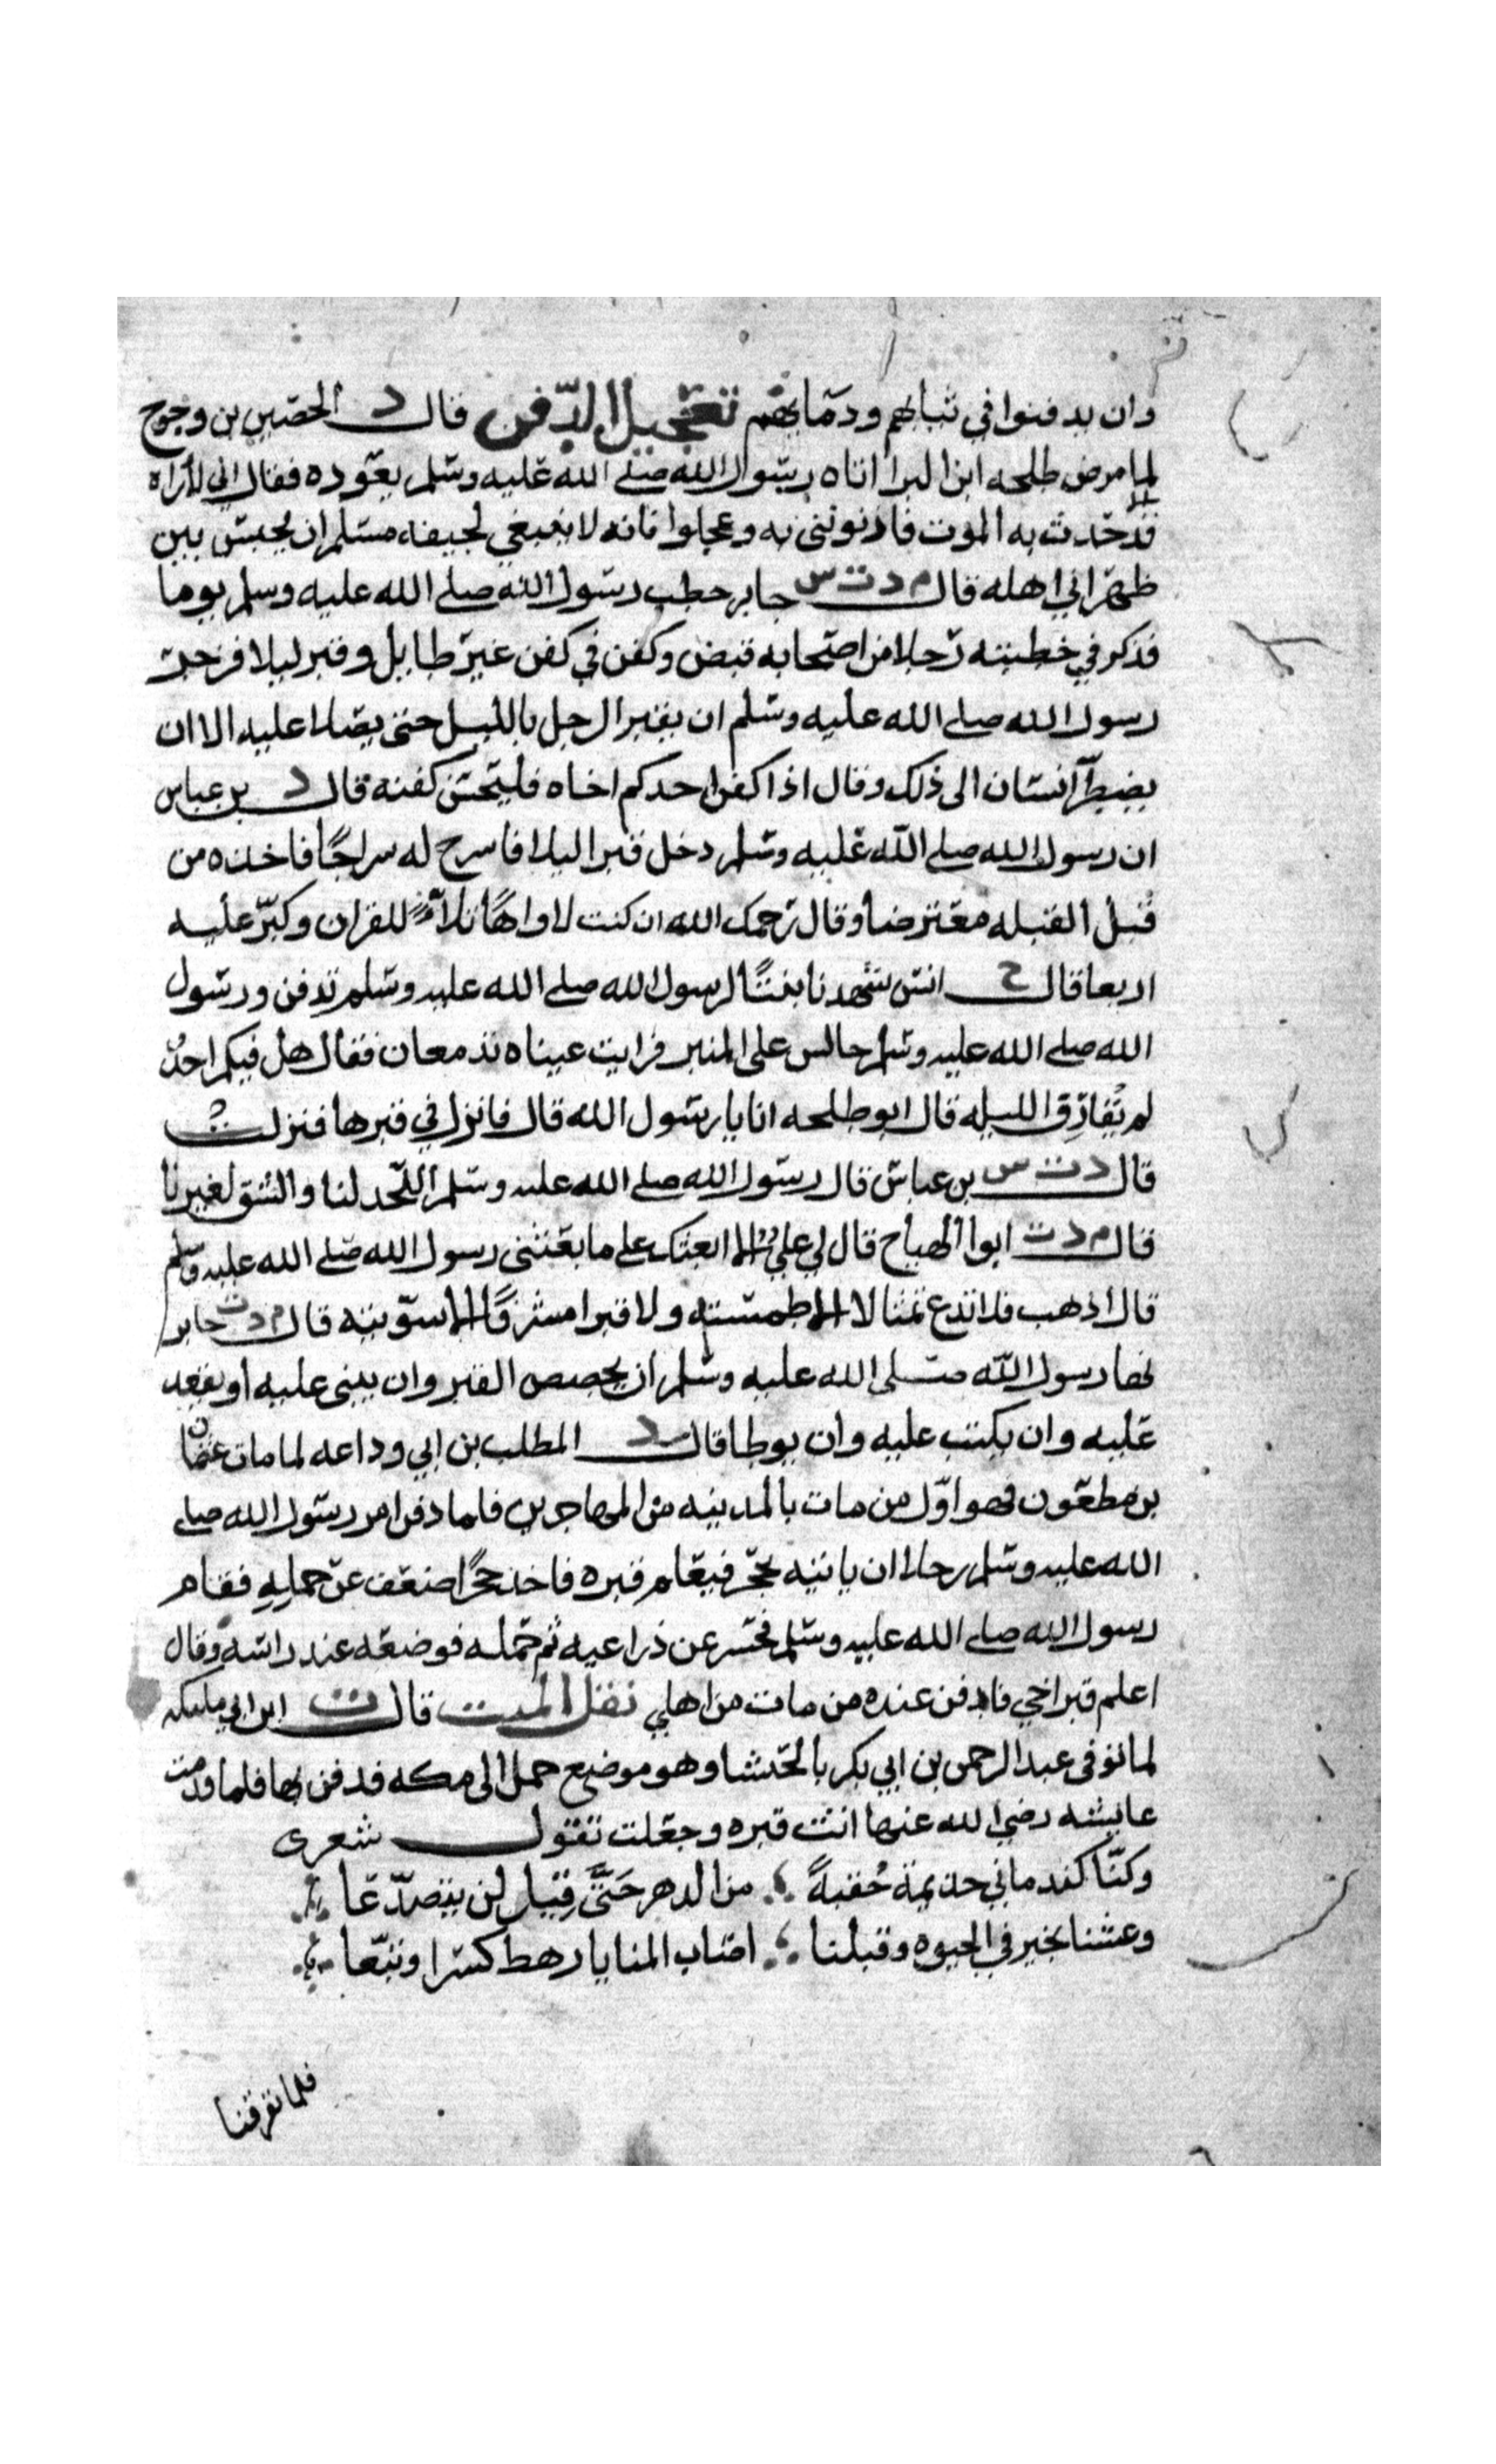 وان يدفنوا في ثيابهم ودمايهم تعجيل الدّفن قال د الحصين بن وحوح
لما مرض طلحه ابن البرا اتاه رسول الله صلى الله عليه وسلم يعوده فقال اني لا اراه
الا قد حدث به الموت فاذنوننى به وعجلوا فانه لا ينبغي لجيفه مسلم ان يحبس بين
ظهراني اهله قال م د ت س جابر خطب رسول الله صلى الله عليه وسلم يوما
فذكر في خطبته رجلا من اصحابه قبض وكفن في كفن غير طايل وقبر ليلا فزجر
رسول الله صلى الله عليه وسلم ان يقبر الرجل بالليل حتى يصلا عليه الا ان
يضطرّ انسان الى ذلك وقال اذا كفن احدكم اخاه فليحسن كفنه قال د بن عباس
ان رسول الله صلى الله عليه وسلم دخل قبرا ليلا فاسرح له سراجًا فاخذه من
قبل القبله معترضا وقال رحمك الله ان كنت لاواهًا تلاءً للقران وكبّر عليه
اربعا قال خ انس شهدنا بنتًا لرسول الله صلى الله عليه وسلم تدفن ورسول
الله صلى الله عليه وسلم جالس على المنبر فرايت عيناه تدمعان فقال هل فيكم احدٌ
لم يُفارِق الليله قال ابو طلحه انا يا رسول الله قال فانزل في قبرها فنزلت
قال د ت س بن عباس قال رسول الله صلى الله عليه وسلم اللّحد لنا والشق لغيرنا
قال م د ت ابوا الهياج قال لي علي الا ابعثك على ما بعثنى رسول الله صلى الله عليه وسلم
قال اذهب فلا تدع تمثالا الا طمسته ولا قبرا مشرفًا الا سوّيته قال م د ت جابر
نها رسول الله صلى الله عليه وسلم ان يجصص القبر وان يبنى عليه او يقعد
عليه وان يكتب عليه وان يوطا قال د المطلب بن ابي وداعه لما مات عثمان
بن مظعون فهو اوّل من مات بالمدينه من المهاجرين فلما دفن امر رسول الله صلى
الله عليه وسلم رجلا ان ياتيه بحجر فيعلم قبره فاخذ حجرًا ضعف عن حملِهِ فقام
رسول الله صلى الله عليه وسلم فحسر عن ذراعيه ثم حمله فوضعه عند راسه وقال
اعلم قبر اخي فادفن عنده من مات من اهلي نقل الميت قال ت ابن ابي مليكه
لما توفى عبد الرحمن بن ابي بكر بالحبشا وهو موضع حمل الى مكه فدفن بها فلما قدمت
عايشه رضي الله عنها اتت قبره وجعلت تقول شعرى
وكنّا كندماني جذيمة حُقبةً من الدهر حَتَّى قِيل لن يتصدّعا
وعشنا بخير في الحيوه وقبلنا اصاب المنايا رهط كسرا وتبّعا
فلما تفرقنا